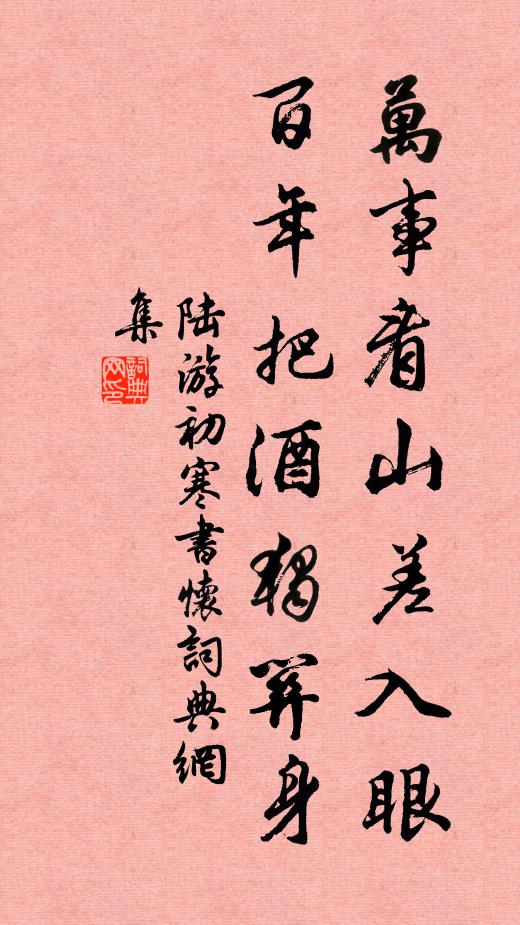 萬事看山差入眼
百年把酒獨關身
陸游初寒書懷詞典網
集
詞典
网印